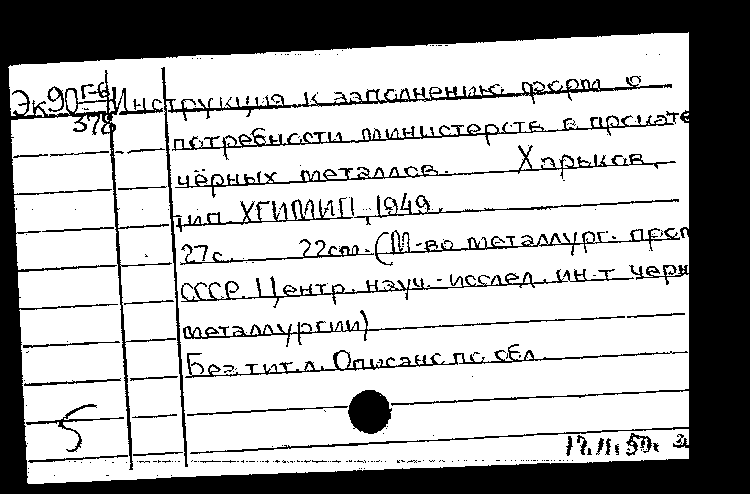 Эк90 Г-6 Инструкция к заполнению форм о
378
потребности министерств в прокате
чёрных металлов. Харьков,
тип. ХГИМИП, 1949.
27с. 22см. (М-во металлург. пром
СССР. Центр. науч.-исслед. ин-т черн
металлургии)
Без тит. л. Описано по обл.
5
12.11.50г.